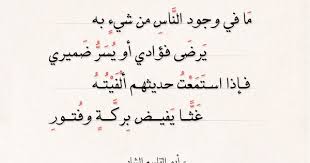 مَا في وجود النَّاسِ من شيءٍ به
يَرضَى فؤادي أو يُسَرُّ ضميري
فإذا استمَعْتُ حديثهم ألفَيْتُهُ
غَثًّا يَفيض بِركَّةٍ وفُتورِ
أبو القاسم الشابي